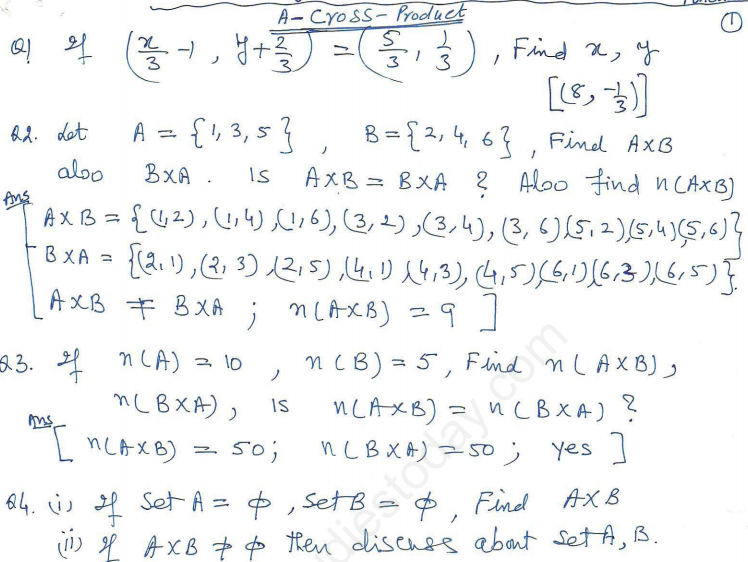 A-Cross-Product
①
Q1 If (x/3 -1, y+2/3) = (5/3, 1/3), Find x, y
[(8, -1/3)]
Q2. Let A = {1,3,5}, B={2,4,6}, Find AXB
also BXA. Is AXB = BXA? Also find n(AXB)
Ans
[AXB = {(1,2),(1,4),(1,6),(3,2),(3,4),(3,6)(5,2)(5,4)(5,6)}
BXA = {(2,1),(2,3),(2,5),(4,1)(4,3),(4,5)(6,1)(6,3)(6,5)}.
AXB ≠ BXA; n(AXB) = 9]
Q3. If n(A) = 10, n(B) = 5, Find n(AXB),
n(BXA), is n(AXB) = n(BXA)?
Ans
[n(AXB) = 50; n(BXA) = 50; yes]
Q4. (i) If Set A = φ, Set B = φ, Find AXB
(ii) If AXB ≠ φ then discuss about set A, B.